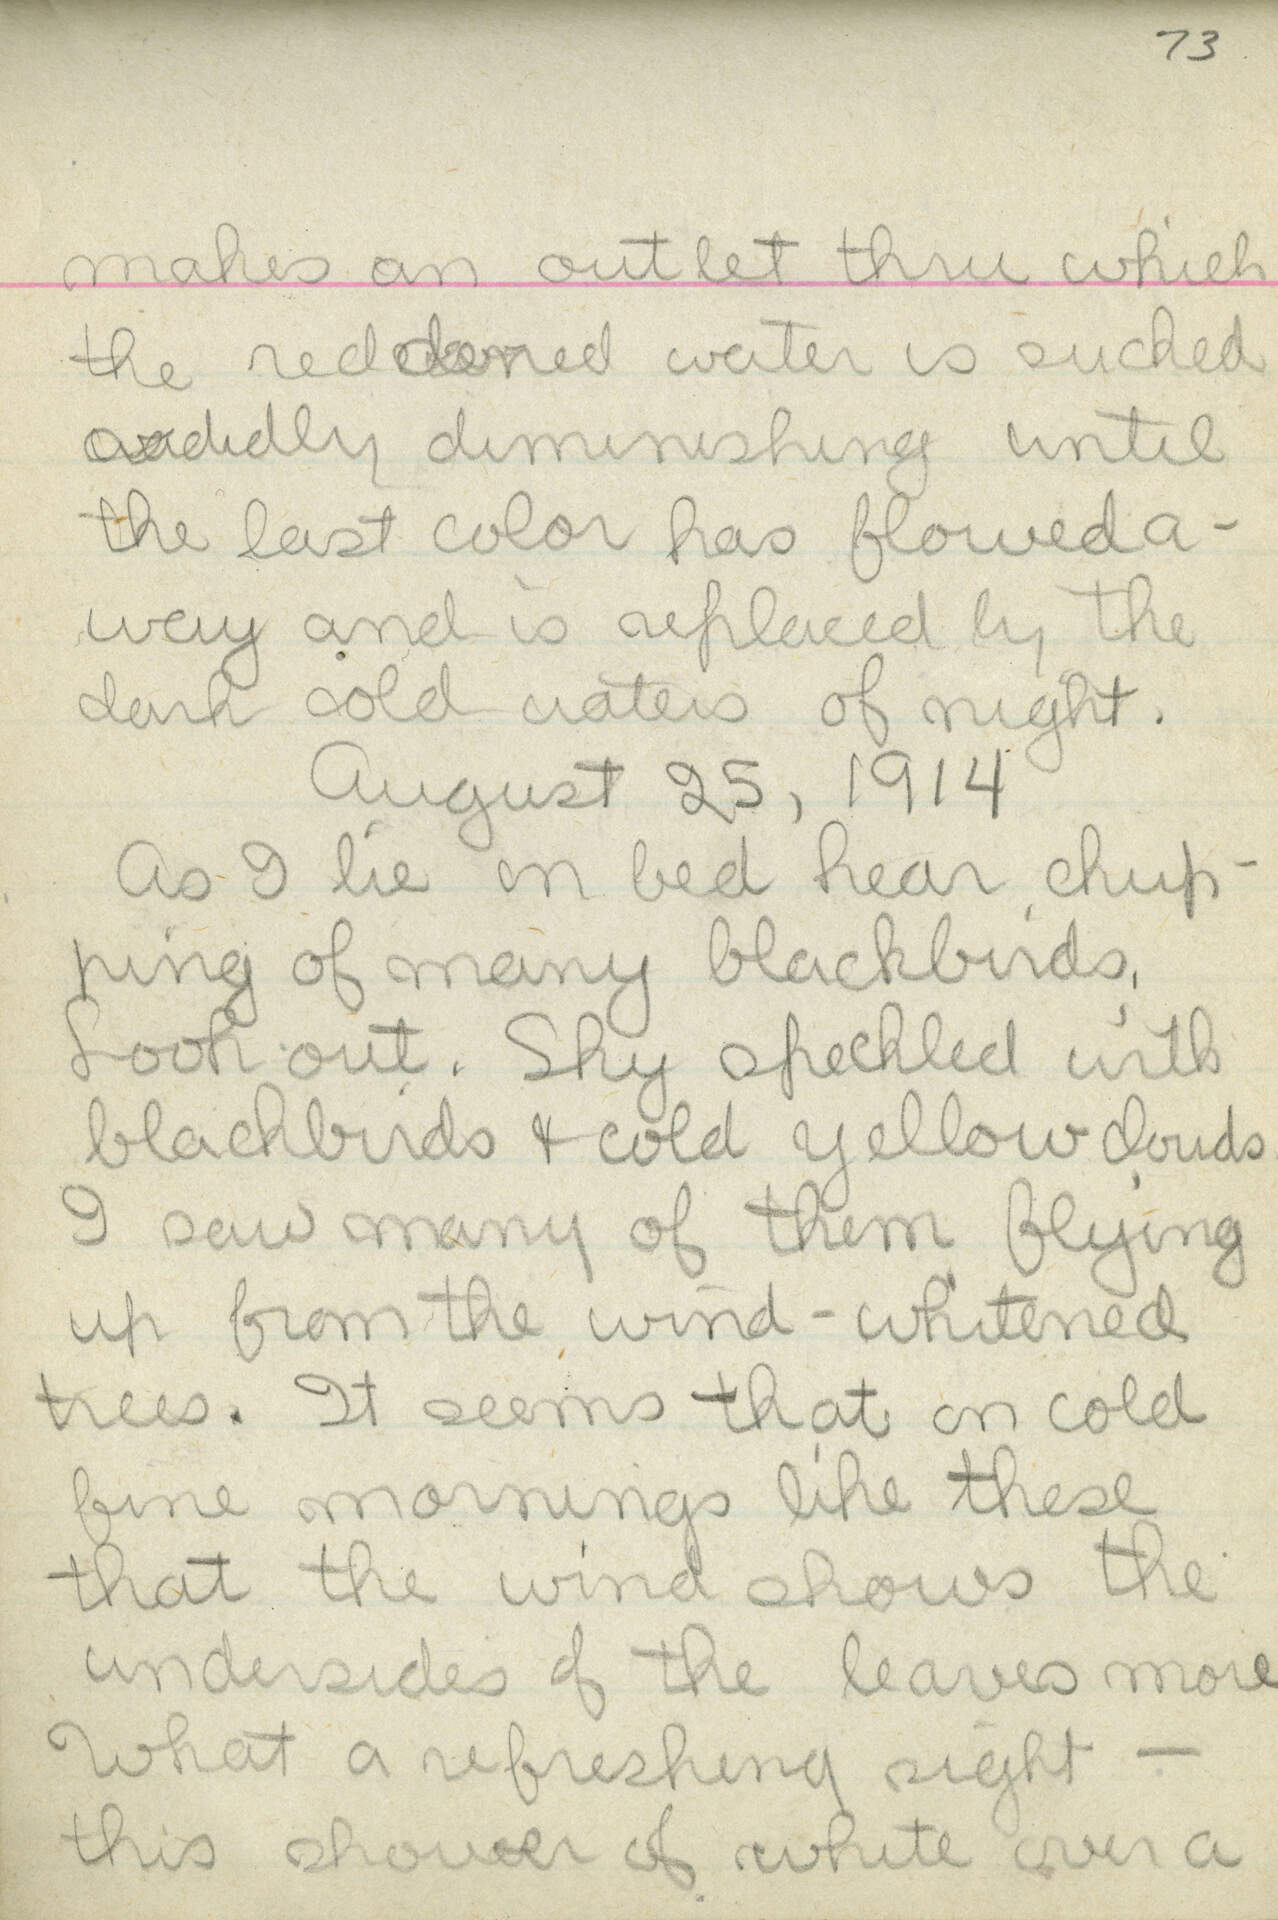 73
makes an outlet thru which
the reddened water is sucked
avidedly diminishing until
the last color has flowed a-
way and is replaced by the
dark cold waters of night.
August 25, 1914
As I lie in bed hear chup-
ping of many blackbirds,
Look out. Sky speckled with
blackbirds & cold yellow clouds.
I saw many of them flying
up from the wind-whitened
trees. It seems that on cold
fine mornings like these
that the wind shows the
undersides of the leaves more
What a refreshing sight —
this shower of white over a